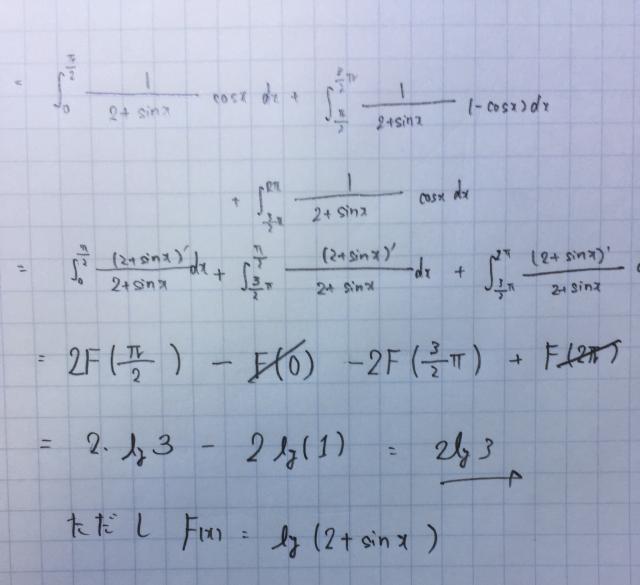 = ∫_0^{π/2} 1/(2+sinx) cosx dx + ∫_{π/2}^{3/2 π} 1/(2+sinx) (-cosx)dx
+ ∫_{3/2 π}^{2π} 1/(2+sinx) cosx dx
= ∫_0^{π/2} (2+sinx)'/(2+sinx) dx + ∫_{3/2 π}^{π/2} (2+sinx)'/(2+sinx) dx + ∫_{3/2 π}^{2π} (2+sinx)'/(2+sinx)
= 2F(π/2) - F(0) -2F(3/2 π) + F(2π)
= 2・log3 - 2log(1) = 2log3
ただし F(x) = log(2+sinx)